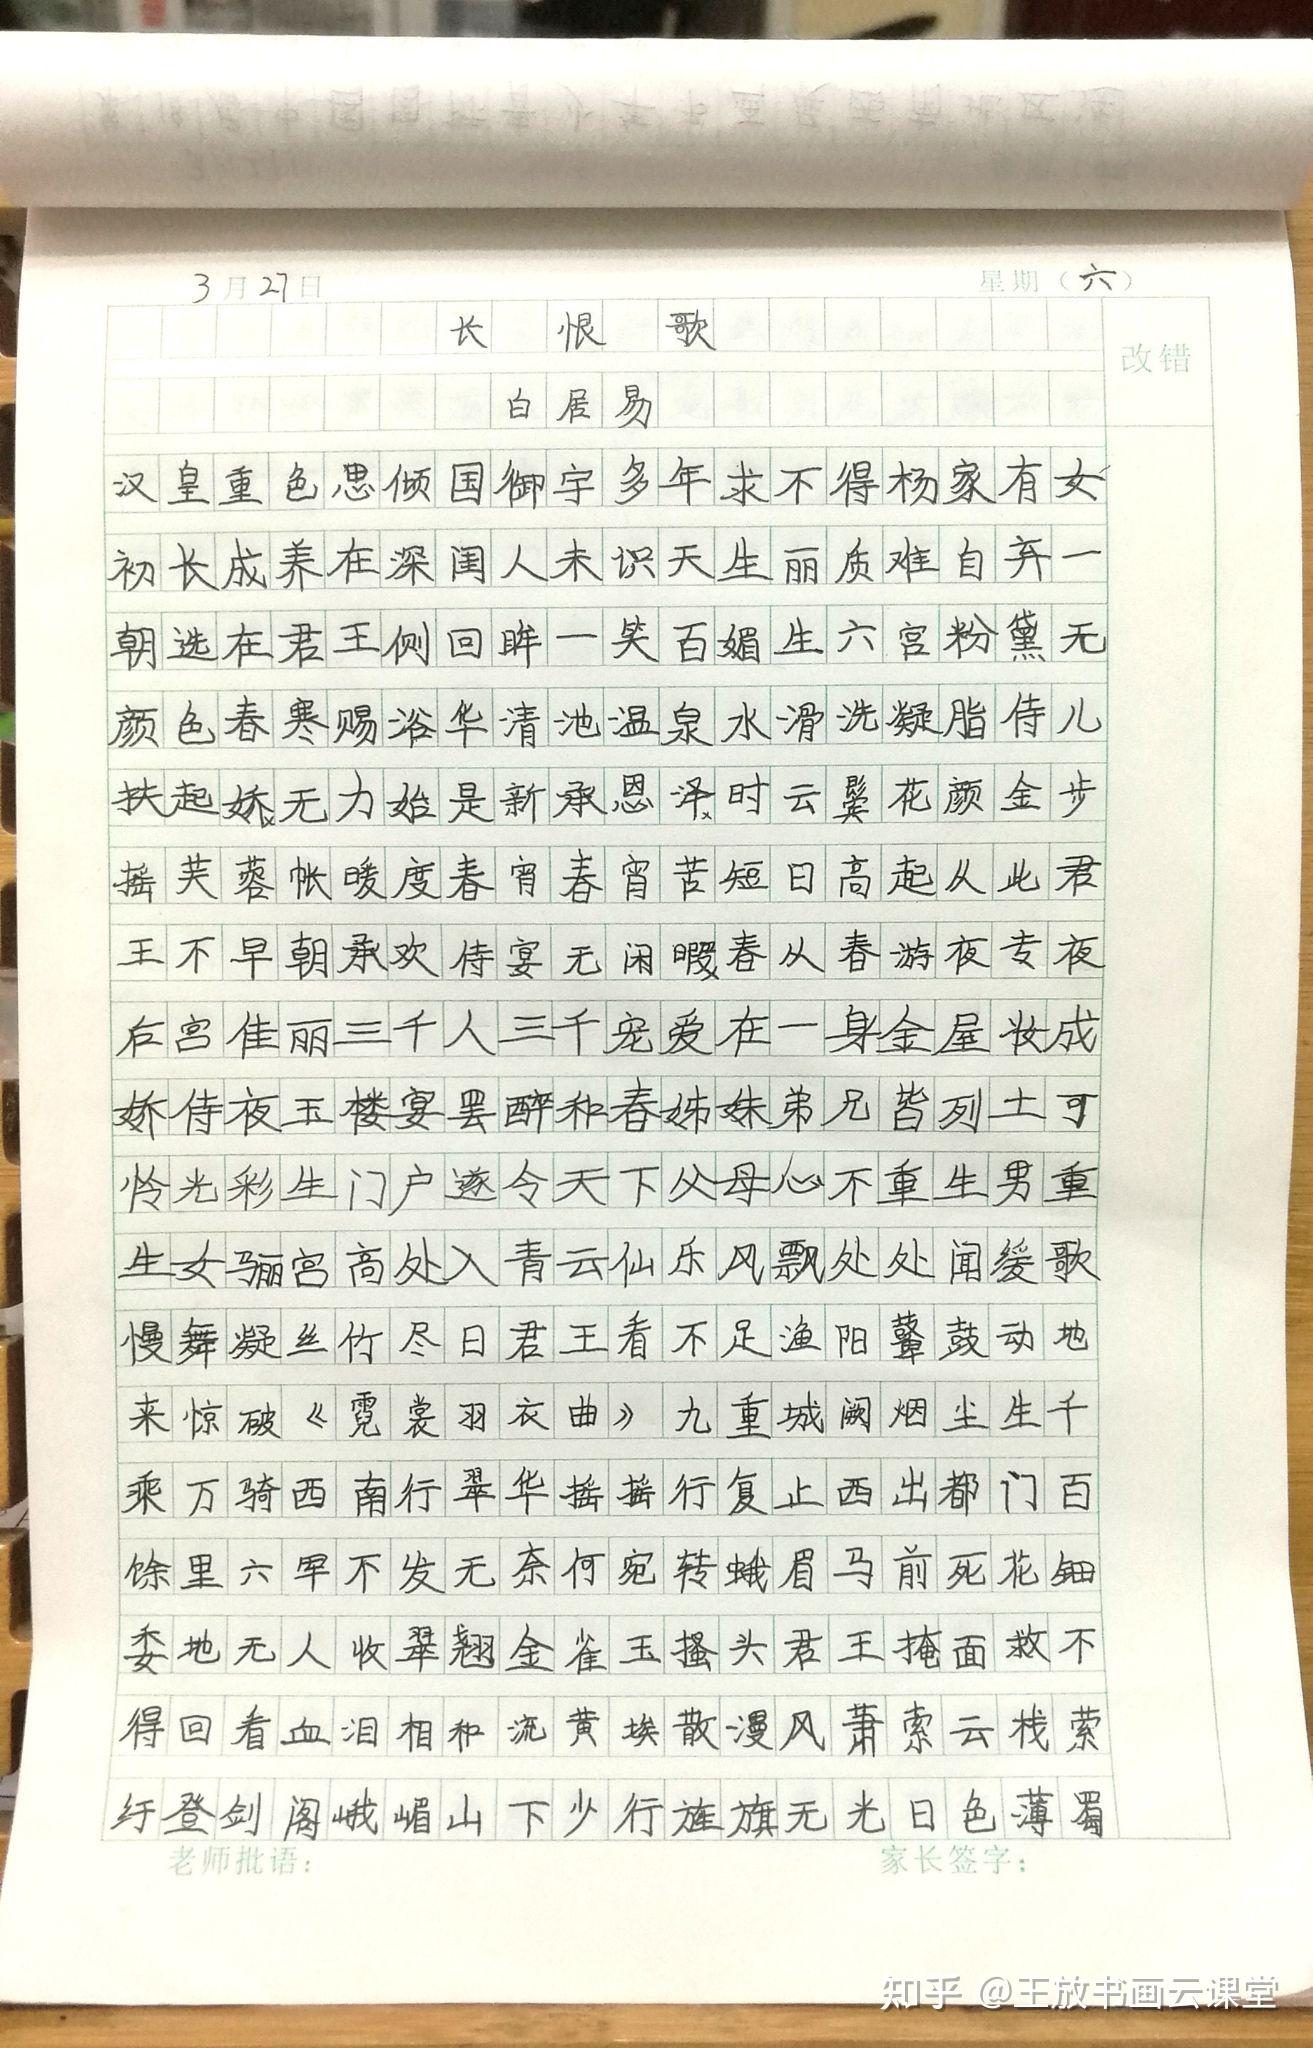 3月27日 星期（六）
长恨歌
改错
白居易
汉皇重色思倾国御宇多年求不得杨家有女
初长成养在深闺人未识天生丽质难自弃一
朝选在君王侧回眸一笑百媚生六宫粉黛无
颜色春寒赐浴华清池温泉水滑洗凝脂侍儿
扶起娇无力始是新承恩泽时云鬓花颜金步
摇芙蓉帐暖度春宵春宵苦短日高起从此君
王不早朝承欢侍宴无闲暇春从春游夜专夜
后宫佳丽三千人三千宠爱在一身金屋妆成
娇侍夜玉楼宴罢醉和春姊妹弟兄皆列土可
怜光彩生门户遂令天下父母心不重生男重
生女骊宫高处入青云仙乐风飘处处闻缓歌
慢舞凝丝竹尽日君王看不足渔阳鼙鼓动地
来惊破《霓裳羽衣曲》九重城阙烟尘生千
乘万骑西南行翠华摇摇行复止西出都门百
馀里六军不发无奈何宛转蛾眉马前死花钿
委地无人收翠翘金雀玉搔头君王掩面救不
得回看血泪相和流黄埃散漫风萧索云栈萦
纡登剑阁峨嵋山下少行旌旗无光日色薄蜀
老师批语： 家长签字：
知乎 @王放书画云课堂